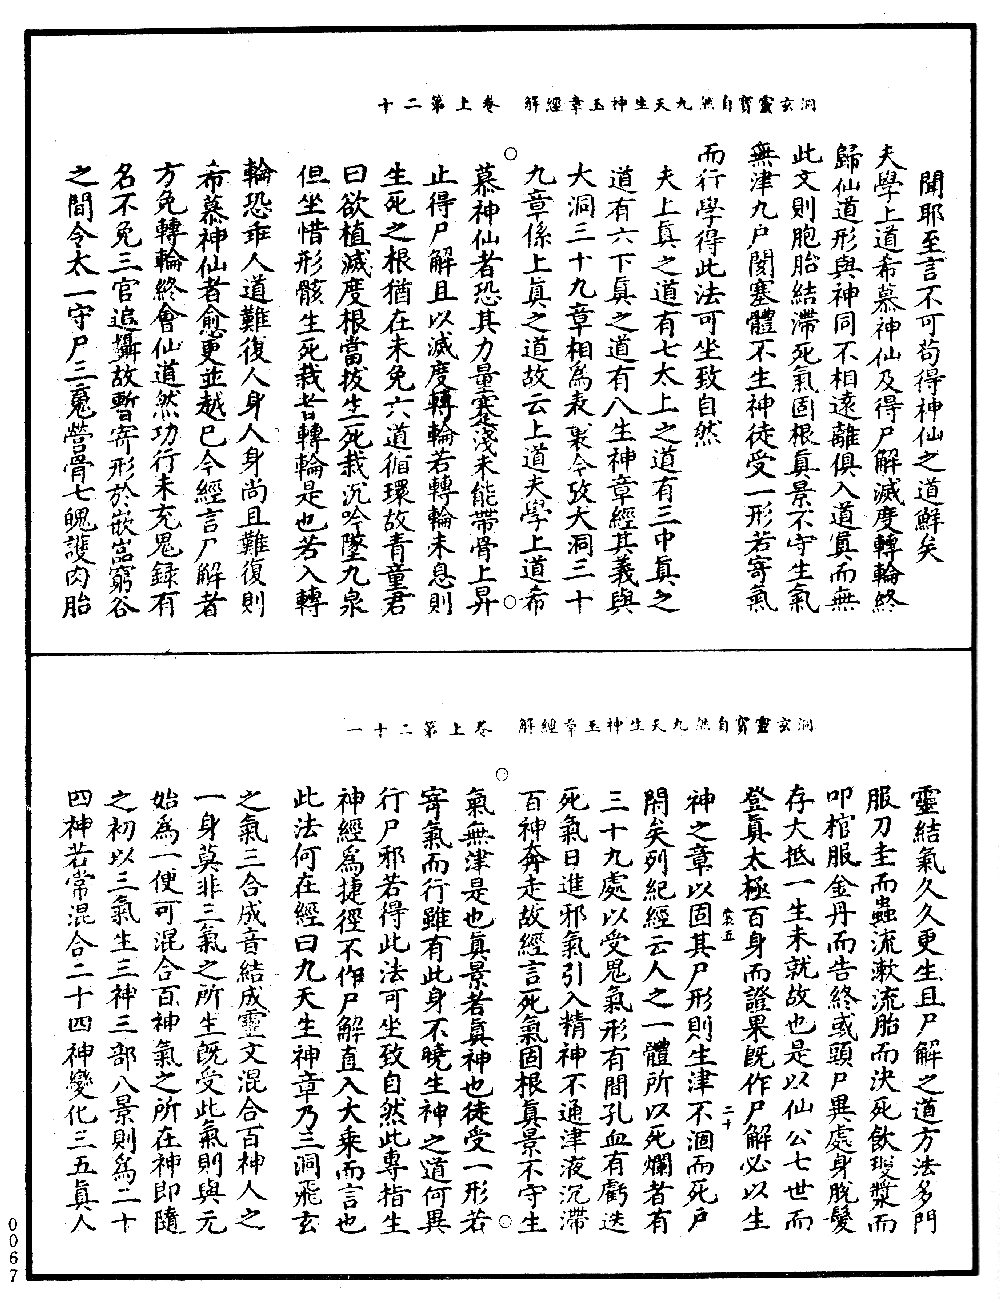 洞玄靈寶自然九天生神玉章經解　卷上第二十
聞耶至言不可苟得神仙之道鮮矣
夫學上道希慕神仙及得尸解滅度轉輪終
歸仙道形與神同不相遠離俱入道真而無
此文則胞胎結滯死氣固根真景不守生氣
無津九戶閉塞體不生神徒受一形若寄氣
而行學得此法可坐致自然
夫上真之道有七太上之道有三中真之
道有六下真之道有八生神章經其義與
大洞三十九章相為表裏今攷大洞三十
九章係上真之道故云上道夫學上道希
慕神仙者恐其力量寋淺未能帶骨上昇
止得尸解且以滅度轉輪若轉輪未息則
生死之根猶在未免六道循環故青童君
曰欲植滅度根當拔生死栽沉吟墜九泉
但坐惜形骸生死栽者轉輪是也若入轉
輪恐乖人道難復人身人身尚且難復則
希慕神仙者愈更並越已今經言尸解者
方免轉輪終會仙道然功行未充鬼錄有
名不免三官追攝故暫寄形於嵌嵓窮谷
之間令太一守尸三䰟營骨七魄護肉胎
洞玄靈寶自然九天生神玉章經解　卷上第二十一
靈結氣久久更生且尸解之道方法多門
服刀圭而蟲流漱流胎而決死飲瓊漿而
叩棺服金丹而告終或頭尸異處身脫髮
存大抵一生未就故也是以仙公七世而
登真太極百身而證果旣作尸解必以生
神之章以固其尸形則生津不涸而死戶
閉矣列紀經云人之一體所以死爛者有
三十九處以受鬼氣形有間孔血有虧迭
死氣日進邪氣引入精神不通津液沉滯
百神奔走故經言死氣固根真景不守生
氣無津是也真景者真神也徒受一形若
寄氣而行雖有此身不曉生神之道何異
行尸邪若得此法可坐致自然此專指生
神經為捷徑不作尸解直入大乘而言也
此法何在經曰九天生神章乃三洞飛玄
之氣三合成音結成靈文混合百神人之
一身莫非三氣之所生旣受此氣則與元
始為一便可混合百神氣之所在神即隨
之初以三氣生三神三部八景則為二十
四神若常混合二十四神變化三五真人
二十
0067